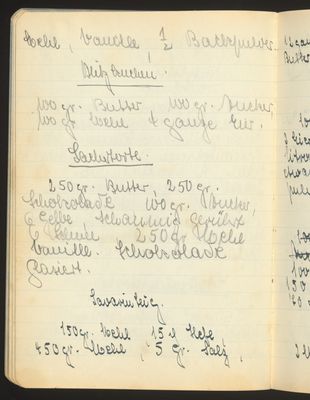 Mehl, Vanille, 1/2 Backpulver.
Blitzkuchen.
100 gr. Butter, 100 gr. Zucker,
100 gr. Mehl 4 ganze Eier.
Sachertorte.
250 gr. Butter, 250 gr.
Schokolade 100 gr. Zucker,
6 Gelbe, schaumig gerührt
6 250 gr. Mehl
Vanille. Schokolade
glasiert.
Savarinteig.
150 gr. Mehl 15 Hefe
450 gr. Mehl, 5 gr. Salz,
Butter